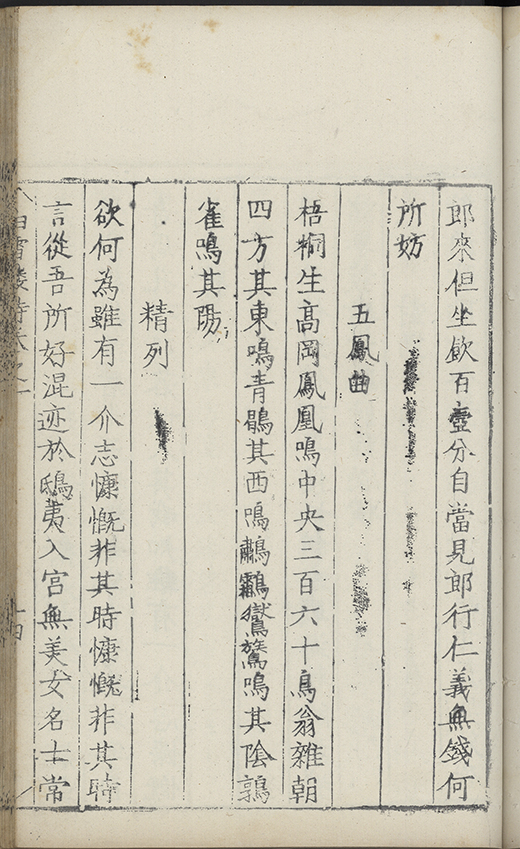 郎來但坐飲百壺分自當見郎行仁義無錢何
所妨
五鳳曲
梧桐生高岡鳳凰鳴中央三百六十鳥翁雜朝
四方其東鳴青鶤其西鳴鷫鸘鸑鷟鳴其陰鶉
雀鳴其陽
精列
欲何為雖有一介志慷慨非其時慷慨非其時
言從吾所好混迹於鴟夷入宮無美女名士常
白雪樓詩卷之一
十四